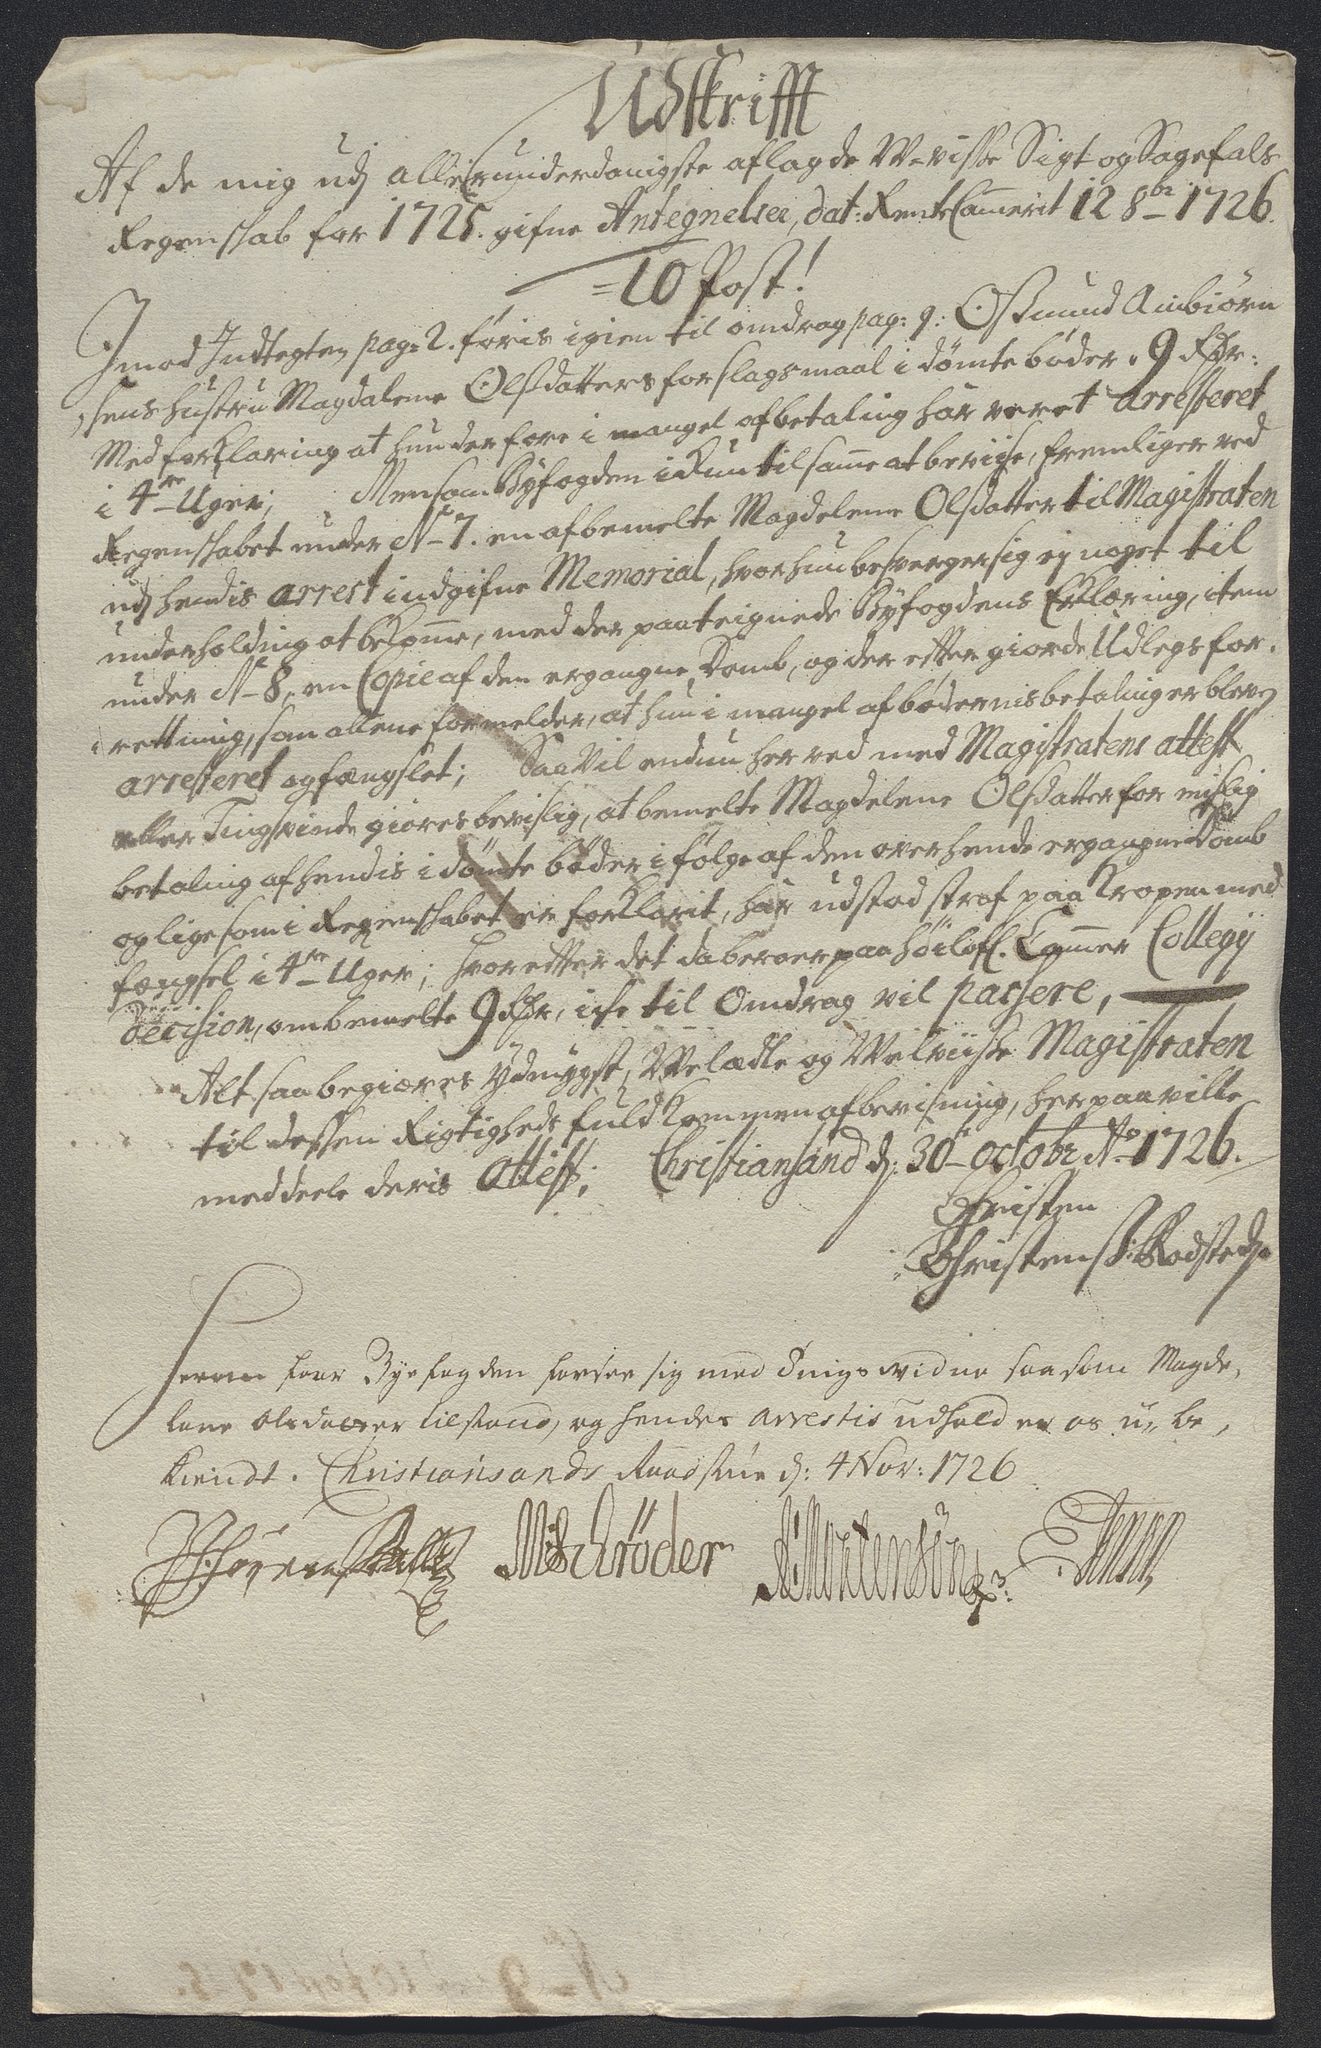 Udskrifft
Af de mig udj allerunderdanigste aflagde U-visse Sigt og Sagefals
Regenskab for 1725. gifne Antegnelser, dat: RenteCamerit 12 8br 1726.
=10 Post!
Imod Indtegten pag: 2. føris igien til omdrag pag: 9: Osmund Ambiørn
sens hustru Magdalene Olsdatters for slagsmaal i dømte bøder, 9 Rdr:
Med forklaring at hun derfore i mangel af betaling har veret arresteret
i 4re Uger; Men som Byfogden i kun til samme at beviise, fremliger ved
Regenskabet under No 7. en af bemelte Magdelene Olsdatter til Magistraten
udj hendis arrest indgifne Memorial, hvor hun besverger sig ej noget til
underholding at bekomme, med der paateignede Byfogdens Erklæring, item
under No 8, en Copie af den ergangne Domb, og der etter giorde Udlegs for,
rettning, som allene formelder, at hun i mangel af bødernis betaling er bleven
arresteret og fængslet; Saa Vil endnu her ved med Magistratens attest
eller Tingsvinde giøres bevislig, at bemelte Magdelene Olsdatter for mislig
betaling af hendis i dømte bøder i følge af den over hende ergangne Domb
og lige som i Regenskabet er forklarit, har udstod straf paa Kropen med
fængsel i 4re Uger; hvoretter det da beroer paa høilofl. Cammer Collegij
Decision, om bemelte 9 Rdr, icke til Omdrag vil passere,
Alt saa begiæres ydmygst, Welædle og Welviisse Magistraten
til dessen Rigtigheds fuldkommen afbevisning, her paa ville
meddeele deris Attest; Christiansand d: 30 octobr Ao 1726.
Christen
Christens: Rodsted
Herom faar Byefogden forsee sig med Tings vidne saasom Magde,
lene Olsdatter tilstand, og hendes arrestis udhold er os u-be,
kiendt. Christiansands Raadstue d: 4 Nov: 1726
MSchrøder Mortensøn